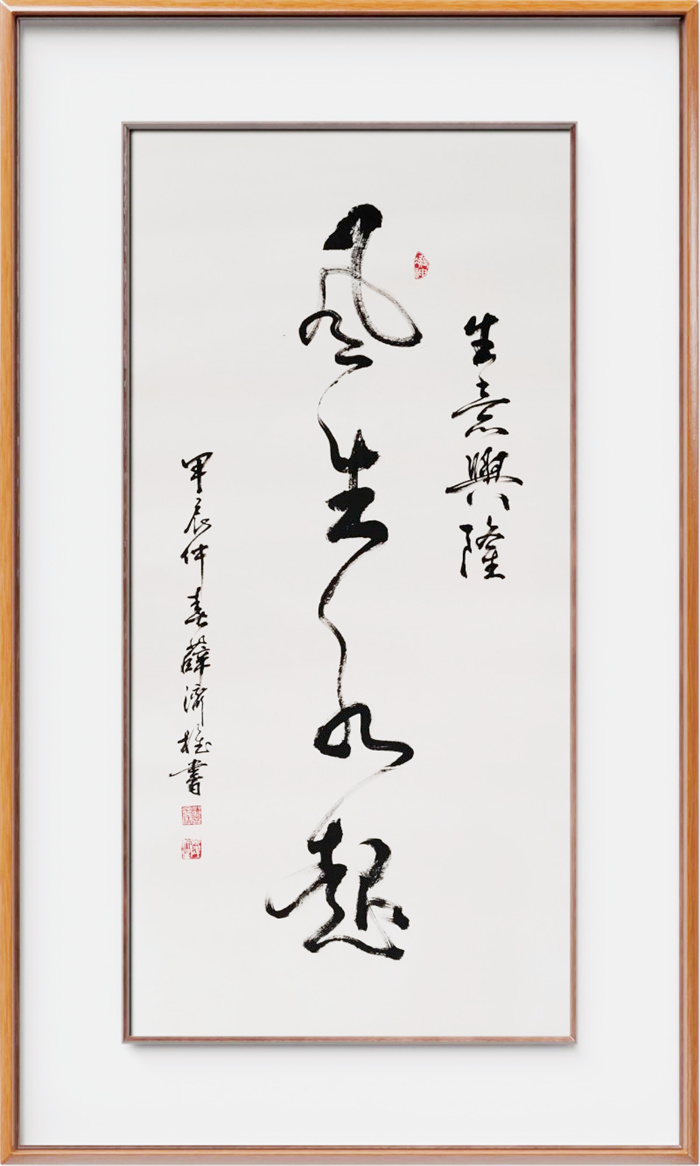 生意興隆
風生水起
甲辰仲春薛濟榕書